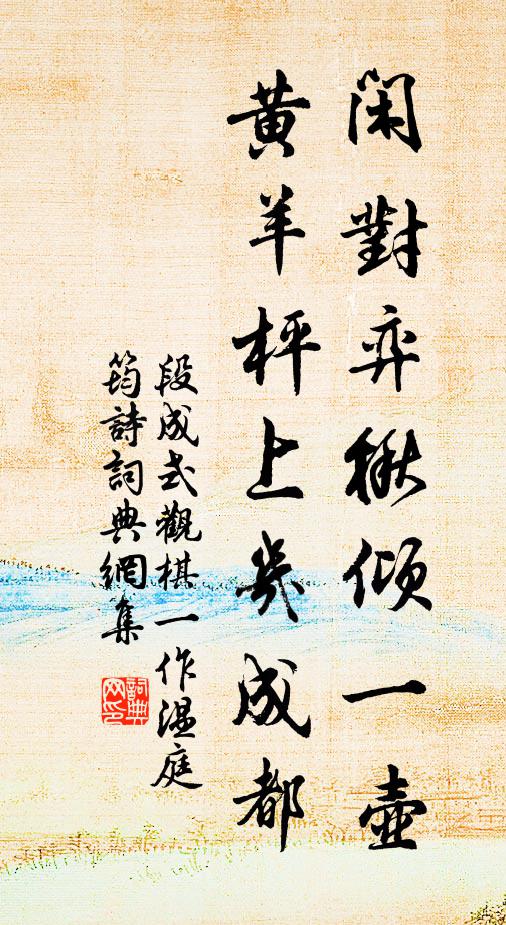 閑對弈楸傾一壺
黃羊枰上幾成都
段成式觀棋一作溫庭
筠詩詞典網集
詞典
网印